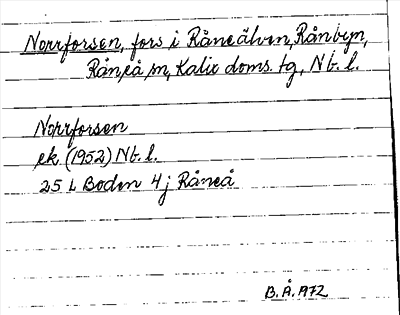 Norrforsen, fors i Råneälven, Rånbyn,
Råneå sn, Kalix doms. tg, Nb. l.
Norrforsen
ek. (1952) Nb. l.
25 L Boden 4 j Råneå
B.Å. 1972